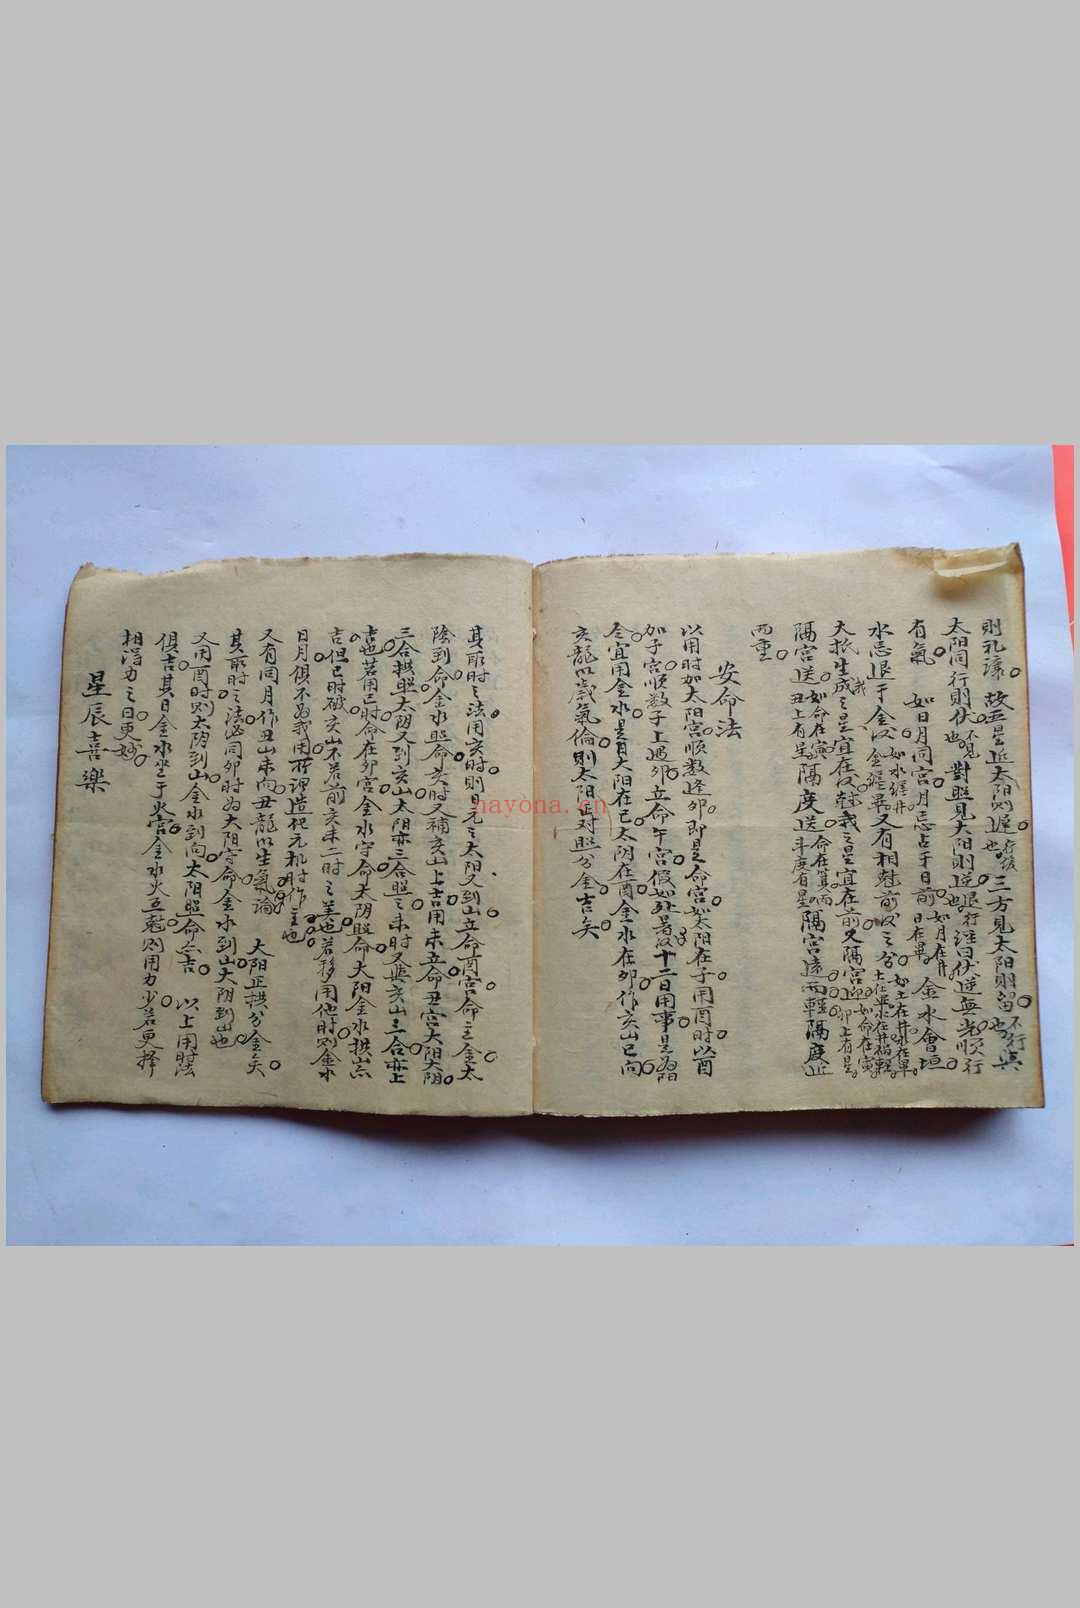 則礼讓 故五星近太阳則遲在後也 三方見太阳則留不行也 與
太阳同行則伏不見也 對照見太阳則逆退行也 經曰伏逆無光順行
有氣 如日月同宮月忌占于日前如月在井日在畢 金水會垣
水忌退于金後如水躔井金躔畢 又有相魁前後之分
大抵生我之星宜在後 魁我之星宜在前 又隔宮迎如命在寅卯上有星
隔宮送如命在寅丑上有星 隔度送命在箕斗度有星 隔宮遠而輕 隔度近
而重
安命法
以用时加太阳宮順数逢卯即是命宮 如太阳在子用酉时以酉
加子宮順数子上遇卯立命午宮 假如处暑後十二日用事是为阳
令宜用金水 是日太阳在巳太阴在酉金水在卯 作亥山巳向
亥龍以歲氣倫則太阳正对照分金吉矣
其取时之法用亥时則日元之太阳又到山立命酉宮命主金太
陰到命金水照命 亥时又補亥山上吉 用未立命丑宮太阳太阴
三合拱照太阴又到亥山太阳亦三合照之 未时又與亥山三合亦上
吉也 若用巳时命在卯宮金水守命太阴照命太阳金水拱山亦
吉 但巳时破亥山不若前亥未二时之美也 若移用他时則金水
日月俱不为我用 所謂造化元机时作主也
又有同月作丑山未向丑龍以生氣論 太阳正拱分金矣
其取时之法必同卯时为太阳守命金水到山太阴到山也
又用酉时則太阴到山金水到向太阳照命亦吉 以上用时法
俱吉 其日金水坐于火宮金水火互魁則用力少 若更择
相得力之日更妙
星辰喜樂
hayona.cn